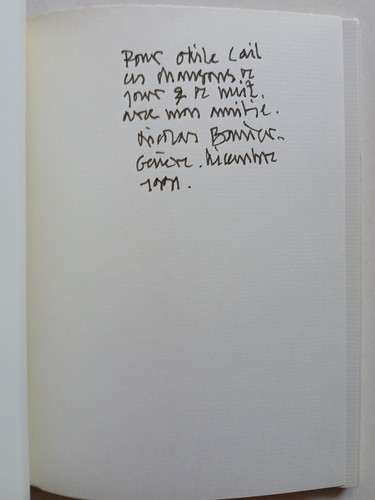 Pour Odile Cail
ces chansons de
jour & de nuit.
avec mon amitié.
Nicolas Bouvier.
Genève. Décembre
1991.